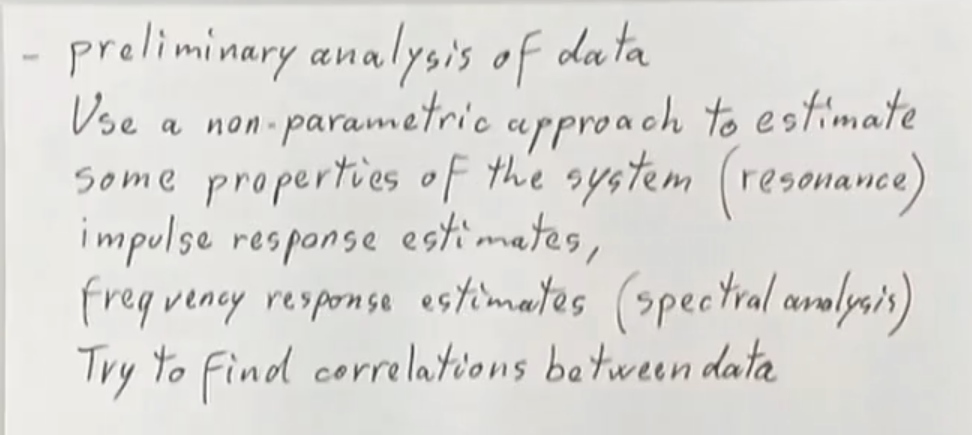 - preliminary analysis of data
Use a non-parametric approach to estimate
some properties of the system (resonance)
impulse response estimates,
frequency response estimates (spectral analysis)
Try to find correlations between data